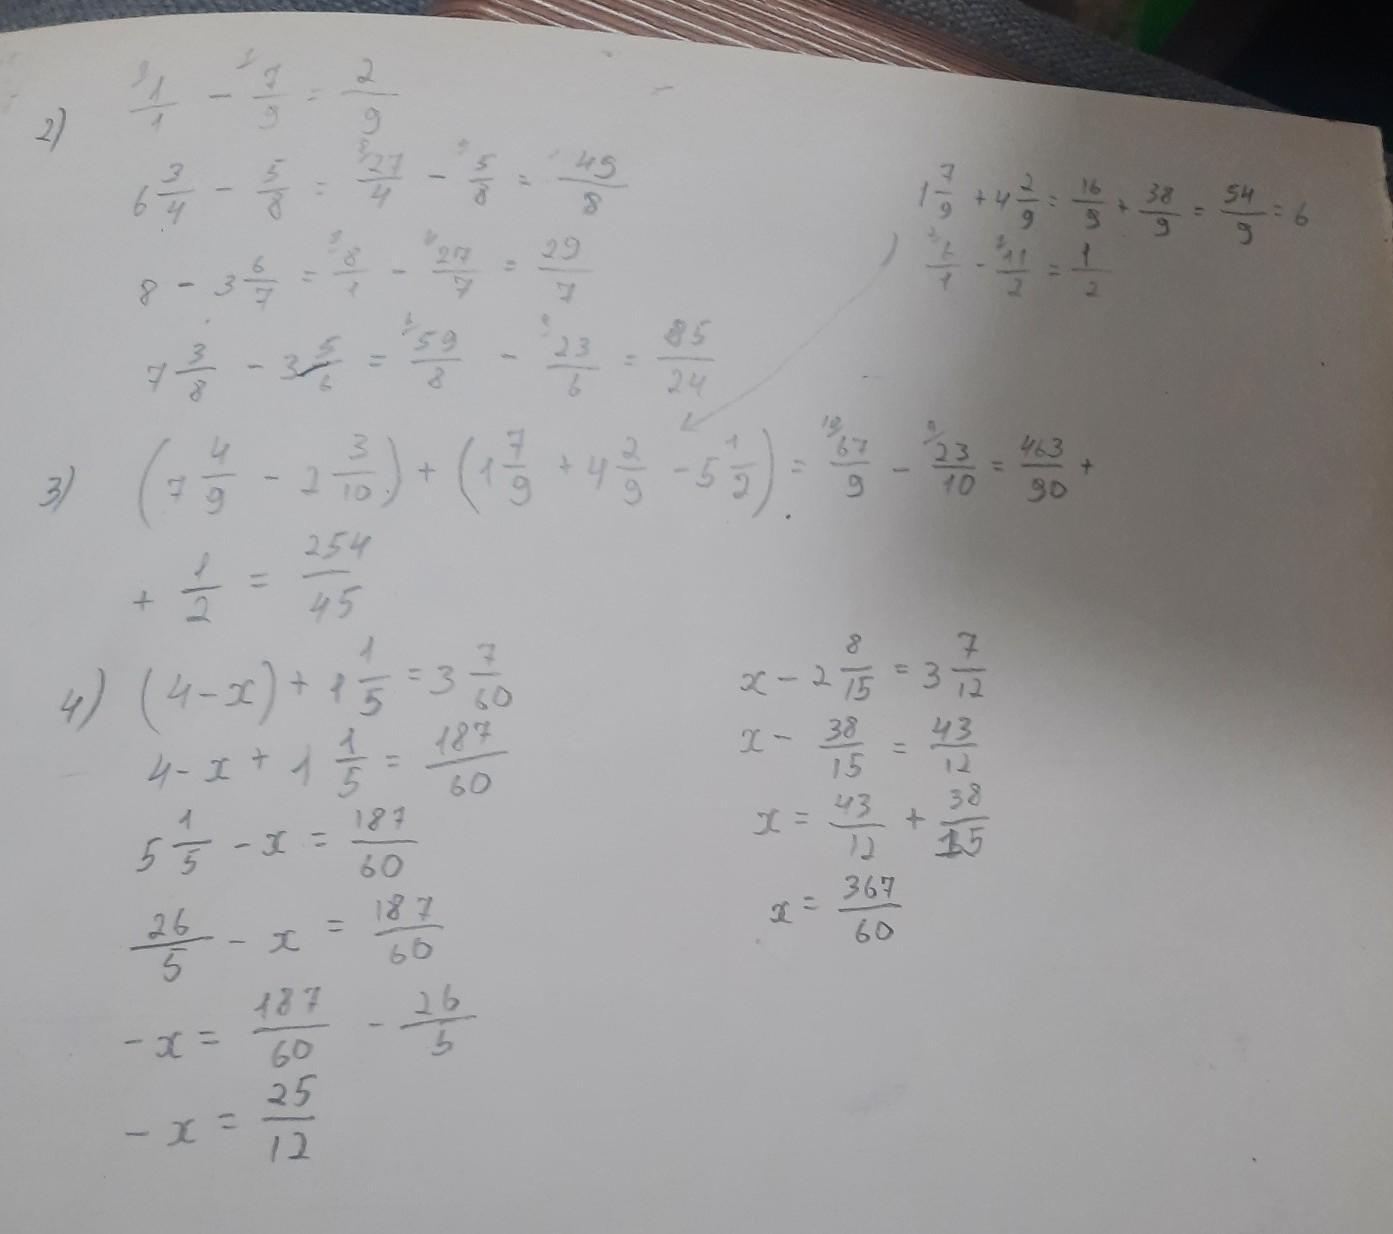 2) 1/1 - 7/9 = 2/9
6 3/4 - 5/8 = 27/4 - 5/8 = 49/8
8 - 3 6/7 = 8/1 - 27/7 = 29/7
7 3/8 - 3 5/6 = 59/8 - 23/6 = 85/24
1 7/9 + 4 2/9 = 16/9 + 38/9 = 54/9 = 6
6/1 - 11/2 = 1/2
3) (7 4/9 - 2 3/10) + (1 7/9 + 4 2/9 - 5 1/2) = 67/9 - 23/10 = 463/90 +
+ 1/2 = 254/45
4) (4 - x) + 1 1/5 = 3 7/60
4 - x + 1 1/5 = 187/60
5 1/5 - x = 187/60
26/5 - x = 187/60
- x = 187/60 - 26/5
- x = 25/12
x - 2 8/15 = 3 7/12
x - 38/15 = 43/12
x = 43/12 + 38/15
x = 367/60